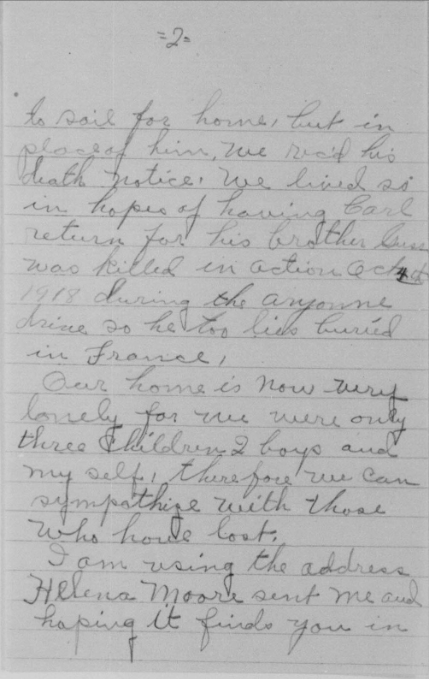 =2=
to sail for home, but in
place of him, we rec'd his
death notice. We lived so
in hopes of having Carl
return for his brother
was killed in action Oct 4th
1918 during the aryonne
drive so he too lies buried
in France,
Our home is now very
lonely for we were only
three children 2 boys and
my self, therefore we can
sympathize with those
who have lost.
I am using the address
Helena Moore sent me and
hoping it finds you in